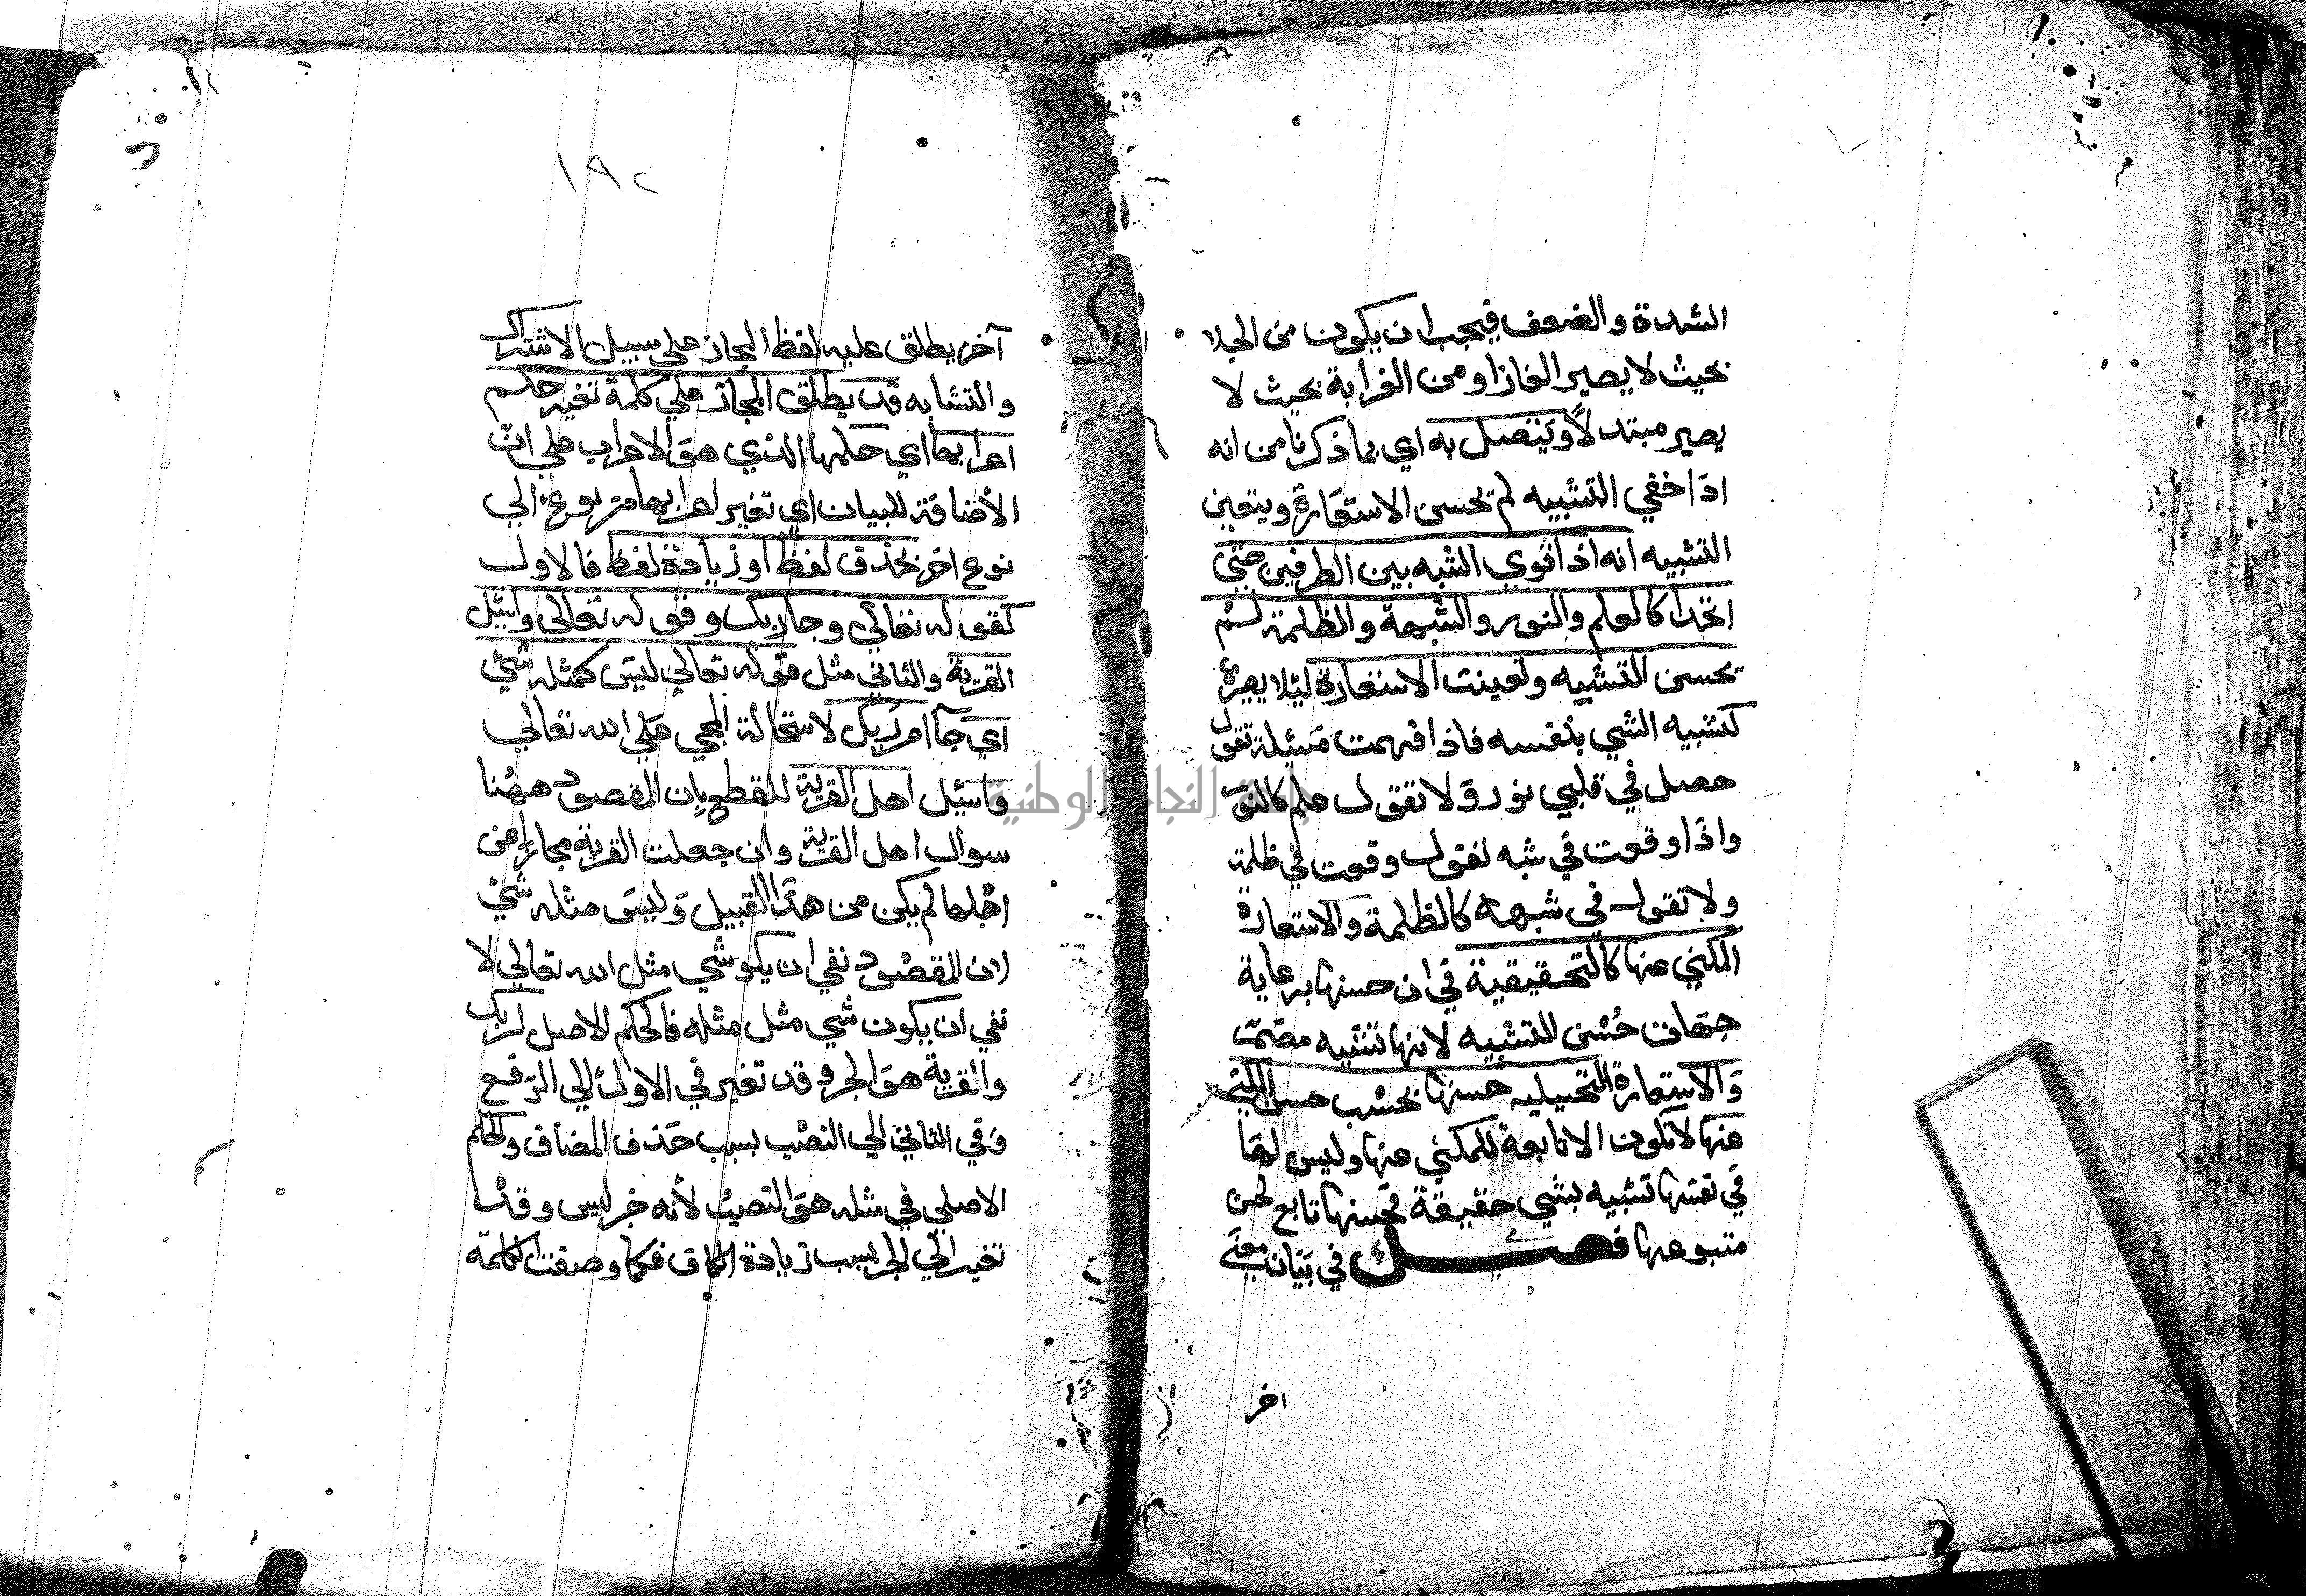 الشدة والضعف فيجب ان يكون من الجلا
بحيث لا يصير الغازا ومن الغرابة بحيث لا
يصير مبتدلًا ويتصل به اي بما ذكرنا من انه
اذا خفي التشبيه لم تحسن الاستعارة ويتعين
التشبيه انه اذا قوي الشبه بين الطرفين حتي
اتحدا كالعلم والنور والشبهة والظلمة لم
تحسن التشبيه وتعينت الاستعارة ليلا يصير
كتشبيه الشي بنفسه فاذا فهمت مسئلة تقول
حصل في قلبي نور ولا تقول علم كالنور
واذا وقعت في شبه تقول وقعت في ظلمة
ولا تقول في شبهة كالظلمة والاستعارة
المكني عنها كالتحقيقية في ان حسنها برعاية
جهات حُسْن التشبيه لانها تشبيه مضمر
والاستعارة التخييليه حسنها بحسْب حسن المكني
عنها لا تكون الا تابعة للمكني عنها وليس لها
في نفسها تشبيه بشي حقيقة فحسنها تابع لحسن
متبوعها فصل في بيان معني
اخر
١٨٢
آخر يطلق عليه لفظ المجاز علي سبيل الاشتراك
والتشابه قد يطلق المجاز علي كلمة تغير حكم
اعرابها اي حكمها الذي هو الاعراب علي ان
الأضافة للبيان اي تغير اعرابها من نوع الي
نوع اخر بحذف لفظ او زيادة لفظ فالاول
كقوله تعالي وجا ربك وقوله تعالي واسئل
القرية والثاني مثل قوله تعالي ليس كمثله شي
اي جآ امر ربك لاستحالة المجي علي الله تعالي
واسئل اهل القرية للقطع بان المقصود ههنا
سوال اهل القرية وان جعلت القرية مجازا من
اهلها لم يكن من هذا القبيل وليس مثله شي
لان المقصود نفي ان يكو شي مثل الله تعالي لا
نفي ان يكون شي مثل مثله فالحكم الاصل لربك
والقرية هو الجر وقد تغير في الاول الي الرفع
وفي الثاني الي النصب بسبب حذف المضاف والحكم
الاصلي في مثله هو النصب لأنه خبر ليس وقد
تغير الي الجر بسبب زيادة الكاف فكما وصفت الكلمة
جامعة النجاح الوطنية